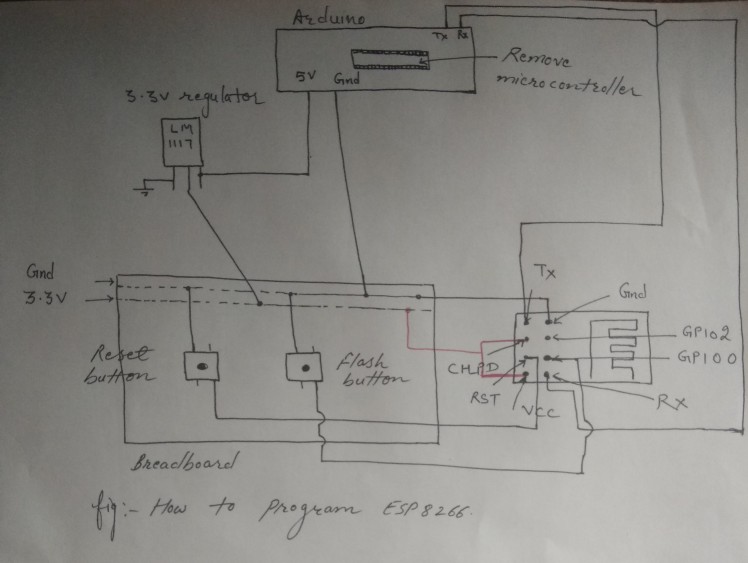 Arduino
Tx Rx
Remove
microcontroller
5V Gnd
3.3V regulator
LM
1117
Gnd
3.3V
Tx
Gnd
GPIO2
GPIO0
CHPD
RST
VCC
Rx
Reset
button
flash
button
Breadboard
fig:- How to Program ESP8266.